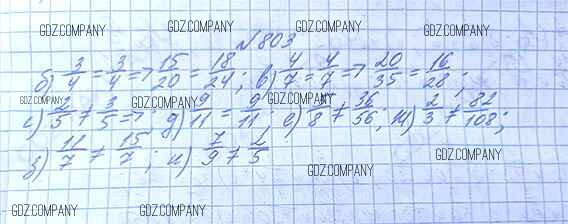 GDZ.COMPANY GDZ.COMPANY GDZ.COMPANY
№803
б) 3/4 = 3/4 => 15/20 = 18/24; в) 4/7 = 4/7 => 20/35 = 16/28;
GDZ.COMPANY GDZ.COMPANY GDZ.COMPANY
2/5 ≠ 3/5 =>; д) 9/11 = 9/11; е) /8 ≠ 36/56; ж) 2/3 ≠ 82/108;
з) 11/7 ≠ 15/7; и) 7/9 ≠ 2/5
GDZ.COMPANY GDZ.COMPANY
GDZ.COMPANY GDZ.COMPANY GDZ.COMPANY